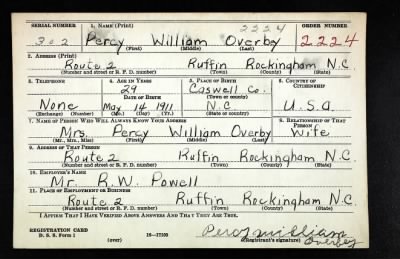 SERIAL NUMBER 1. NAME (Print) 2224 ORDER NUMBER
302 Percy William Overby 2224
(First) (Middle) (Last)
2. ADDRESS (Print)
Route 2 Ruffin Rockingham N.C.
(Number and street or R. F. D. number) (Town) (County) (State)
3. TELEPHONE 4. AGE IN YEARS 5. PLACE OF BIRTH 6. COUNTRY OF CITIZENSHIP
29 Caswell Co.
DATE OF BIRTH (Town or county)
None May 14 1911 N.C. U.S.A.
(Exchange) (Number) (Mo.) (Day) (Yr.) (State or country)
7. NAME OF PERSON WHO WILL ALWAYS KNOW YOUR ADDRESS 8. RELATIONSHIP OF THAT PERSON
Mrs. Percy William Overby Wife
(Mr., Mrs., Miss) (First) (Middle) (Last)
9. ADDRESS OF THAT PERSON
Route 2 Ruffin Rockingham N.C.
(Number and street or R. F. D. number) (Town) (County) (State)
10. EMPLOYER'S NAME
Mr. R.W. Powell
11. PLACE OF EMPLOYMENT OR BUSINESS
Route 2 Ruffin Rockingham N.C.
(Number and street or R. F. D. number) (Town) (County) (State)
I AFFIRM THAT I HAVE VERIFIED ABOVE ANSWERS AND THAT THEY ARE TRUE.
REGISTRATION CARD
D. S. S. Form 1 16—17105 Percy william
(over) (Registrant's signature) overby